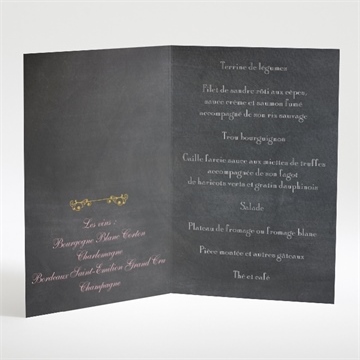 Les vins :
Bourgogne Blanc Corton
Charlemagne
Bordeaux Saint-Emilion Grand Cru
Champagne
Terrine de légumes
Filet de sandre rôti aux cèpes,
sauce crème et saumon fumé
accompagné de son riz sauvage
Trou bourguignon
Caille farcie sauce aux miettes de truffes
accompagnée de son fagot
de haricots verts et gratin dauphinois
Salade
Plateau de fromage ou fromage blanc
Pièce montée et autres gâteaux
Thé et café